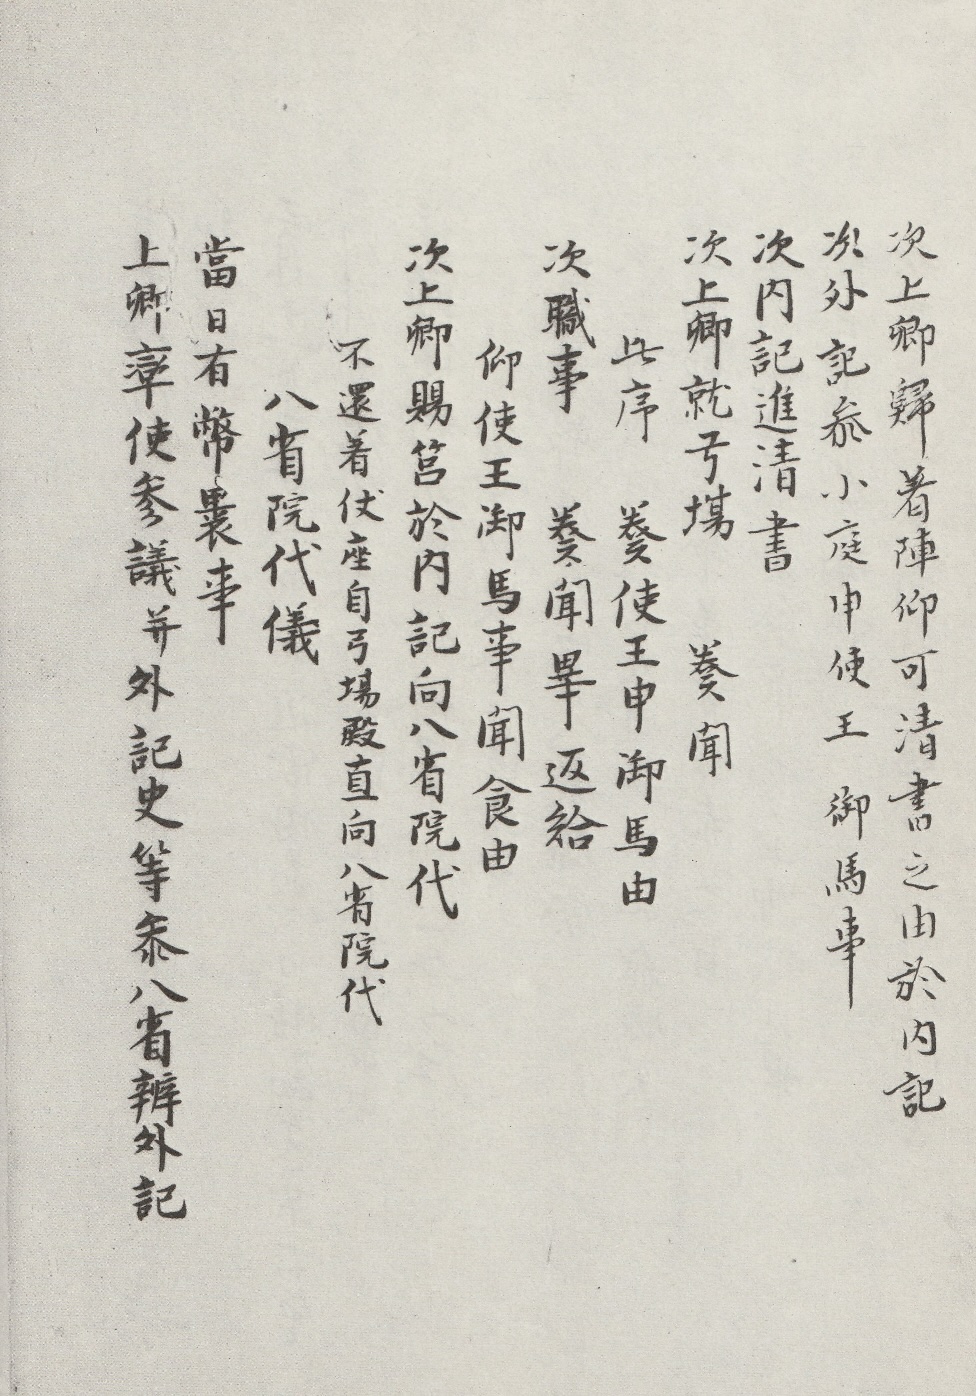 次上卿歸著陣仰可清書之由於内記
次外記参小庭申使王 御馬事
次内記進清書
次上卿就弓場 奏聞
此序 奏使王申御馬由
次職事 奏聞畢返給
仰使王御馬事聞食由
次上卿賜筥於内記向八省院代
不還着仗座自弓場殿直向八省院代
八省院代儀
當日有幣裹事
上卿率使参議并外記史等参八省辨外記